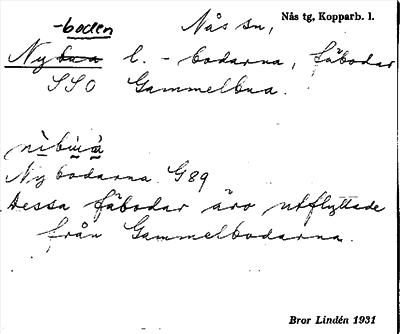 -boden Nås sn, Nås tg, Kopparb. l.
Nybua l. - bodarna, fäbodar
SSO Gammelbua.
Nybodarna G89
Dessa fäbodar äro utflyttade
från Gammelbodarna.
Bror Lindén 1931